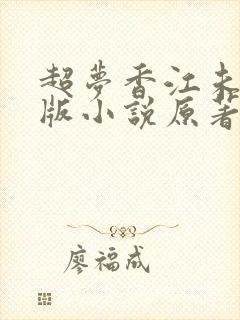 超夢香江未
版小說原著
廖福成